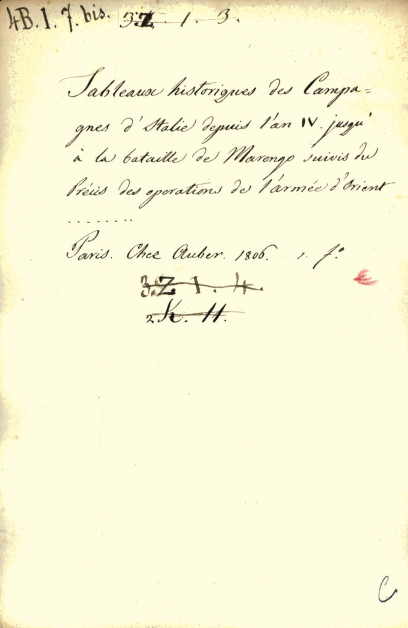 4B. I. 7. bis. 3.Z. 1. 3.
Tableaux historiques des Campa=
gnes d'Italie depuis l'an IV. jusqu'
à la bataille de Marengo suivis du
Précis des operations de l'armée d'Orient
........
Paris. Chez Auber. 1806. 1. fo.
3.Z. 1. 4.
2 K. 11.
C